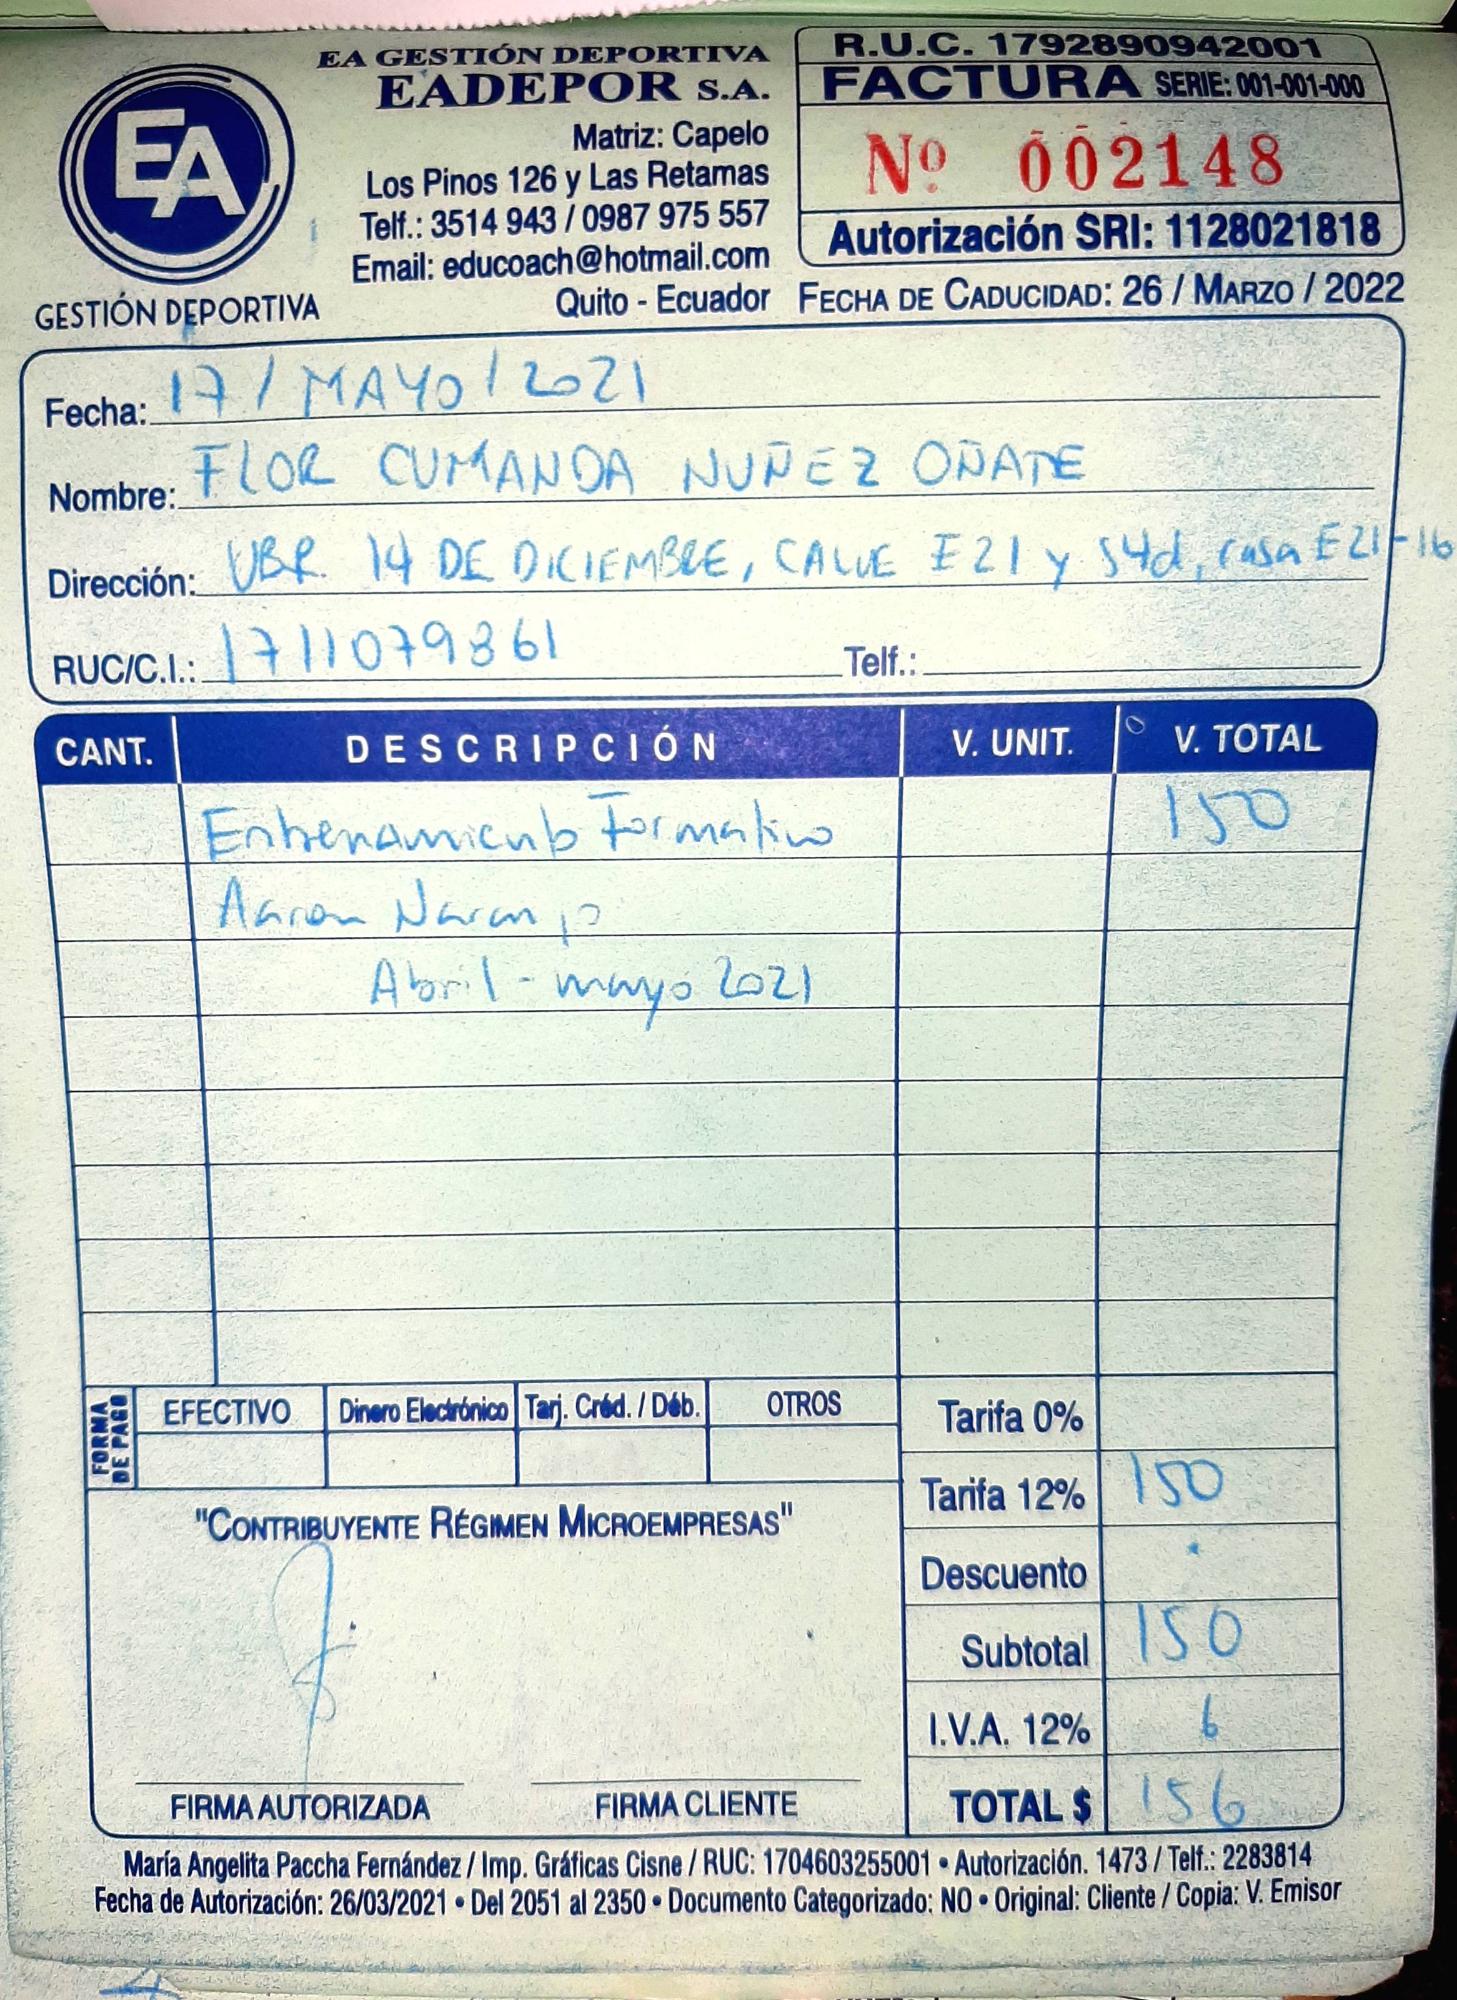 EA GESTIÓN DEPORTIVA
EADEPOR S.A.
Matriz: Capelo
Los Pinos 126 y Las Retamas
Telf.: 3514 943 / 0987 975 557
Email: educoach@hotmail.com
Quito - Ecuador
EA
GESTIÓN DEPORTIVA
R.U.C. 1792890942001
FACTURA SERIE: 001-001-000
Nº 002148
Autorización SRI: 1128021818
FECHA DE CADUCIDAD: 26 / MARZO / 2022
Fecha: 17 / MAYO / 2021
Nombre: FLOR CUMANDA NUÑEZ OÑATE
Dirección: UBR. 14 DE DICIEMBRE, CALLE E21 y S4d, casa E21-16
RUC/C.I.: 1711079861 Telf.:
CANT. DESCRIPCIÓN V. UNIT. V. TOTAL
Entrenamiento Formativo 150
Aaron Naranjo
Abril - mayo 2021
FORMA DE PAGO
EFECTIVO Dinero Electrónico Tarj. Créd. / Déb. OTROS
Tarifa 0%
Tarifa 12% 150
Descuento
Subtotal 150
I.V.A. 12% 6
TOTAL $ 156
"CONTRIBUYENTE RÉGIMEN MICROEMPRESAS"
FIRMA AUTORIZADA FIRMA CLIENTE
María Angelita Paccha Fernández / Imp. Gráficas Cisne / RUC: 1704603255001 • Autorización. 1473 / Telf.: 2283814
Fecha de Autorización: 26/03/2021 • Del 2051 al 2350 • Documento Categorizado: NO • Original: Cliente / Copia: V. Emisor